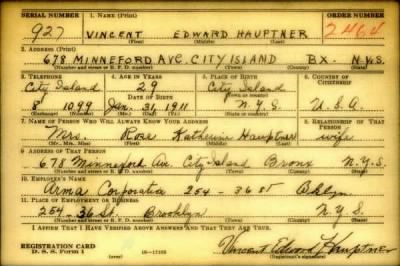 SERIAL NUMBER 1. NAME (Print) ORDER NUMBER
927 VINCENT EDWARD HAUPTNER
(First) (Middle) (Last)
2. ADDRESS (Print)
678 MINNEFORD AVE. CITY ISLAND BX. N.Y.S.
(Number and street or R. F. D. number) (Town) (County) (State)
3. TELEPHONE 4. AGE IN YEARS 5. PLACE OF BIRTH 6. COUNTRY OF CITIZENSHIP
City Island 29 City Island
DATE OF BIRTH (Town or county)
8 1099 Jan. 31, 1911 N.Y.S. U.S.A.
(Exchange) (Number) (Mo.) (Day) (Yr.) (State or country)
7. NAME OF PERSON WHO WILL ALWAYS KNOW YOUR ADDRESS 8. RELATIONSHIP OF THAT PERSON
Mrs. Rose Katherine Hauptner wife
(Mr., Mrs., Miss) (First) (Middle) (Last)
9. ADDRESS OF THAT PERSON
678 Minneford Av. City Island Bronx N.Y.S.
(Number and street or R. F. D. number) (Town) (County) (State)
10. EMPLOYER'S NAME
Arma Corporation 254 - 36 St Bklyn
11. PLACE OF EMPLOYMENT OR BUSINESS
254 - 36 St. Brooklyn N.Y.S.
(Number and street or R. F. D. number) (Town) (County) (State)
I AFFIRM THAT I HAVE VERIFIED ABOVE ANSWERS AND THAT THEY ARE TRUE.
REGISTRATION CARD Vincent Edward Hauptner
D. S. S. Form 1 (over) 16-17105 (Registrant's signature)